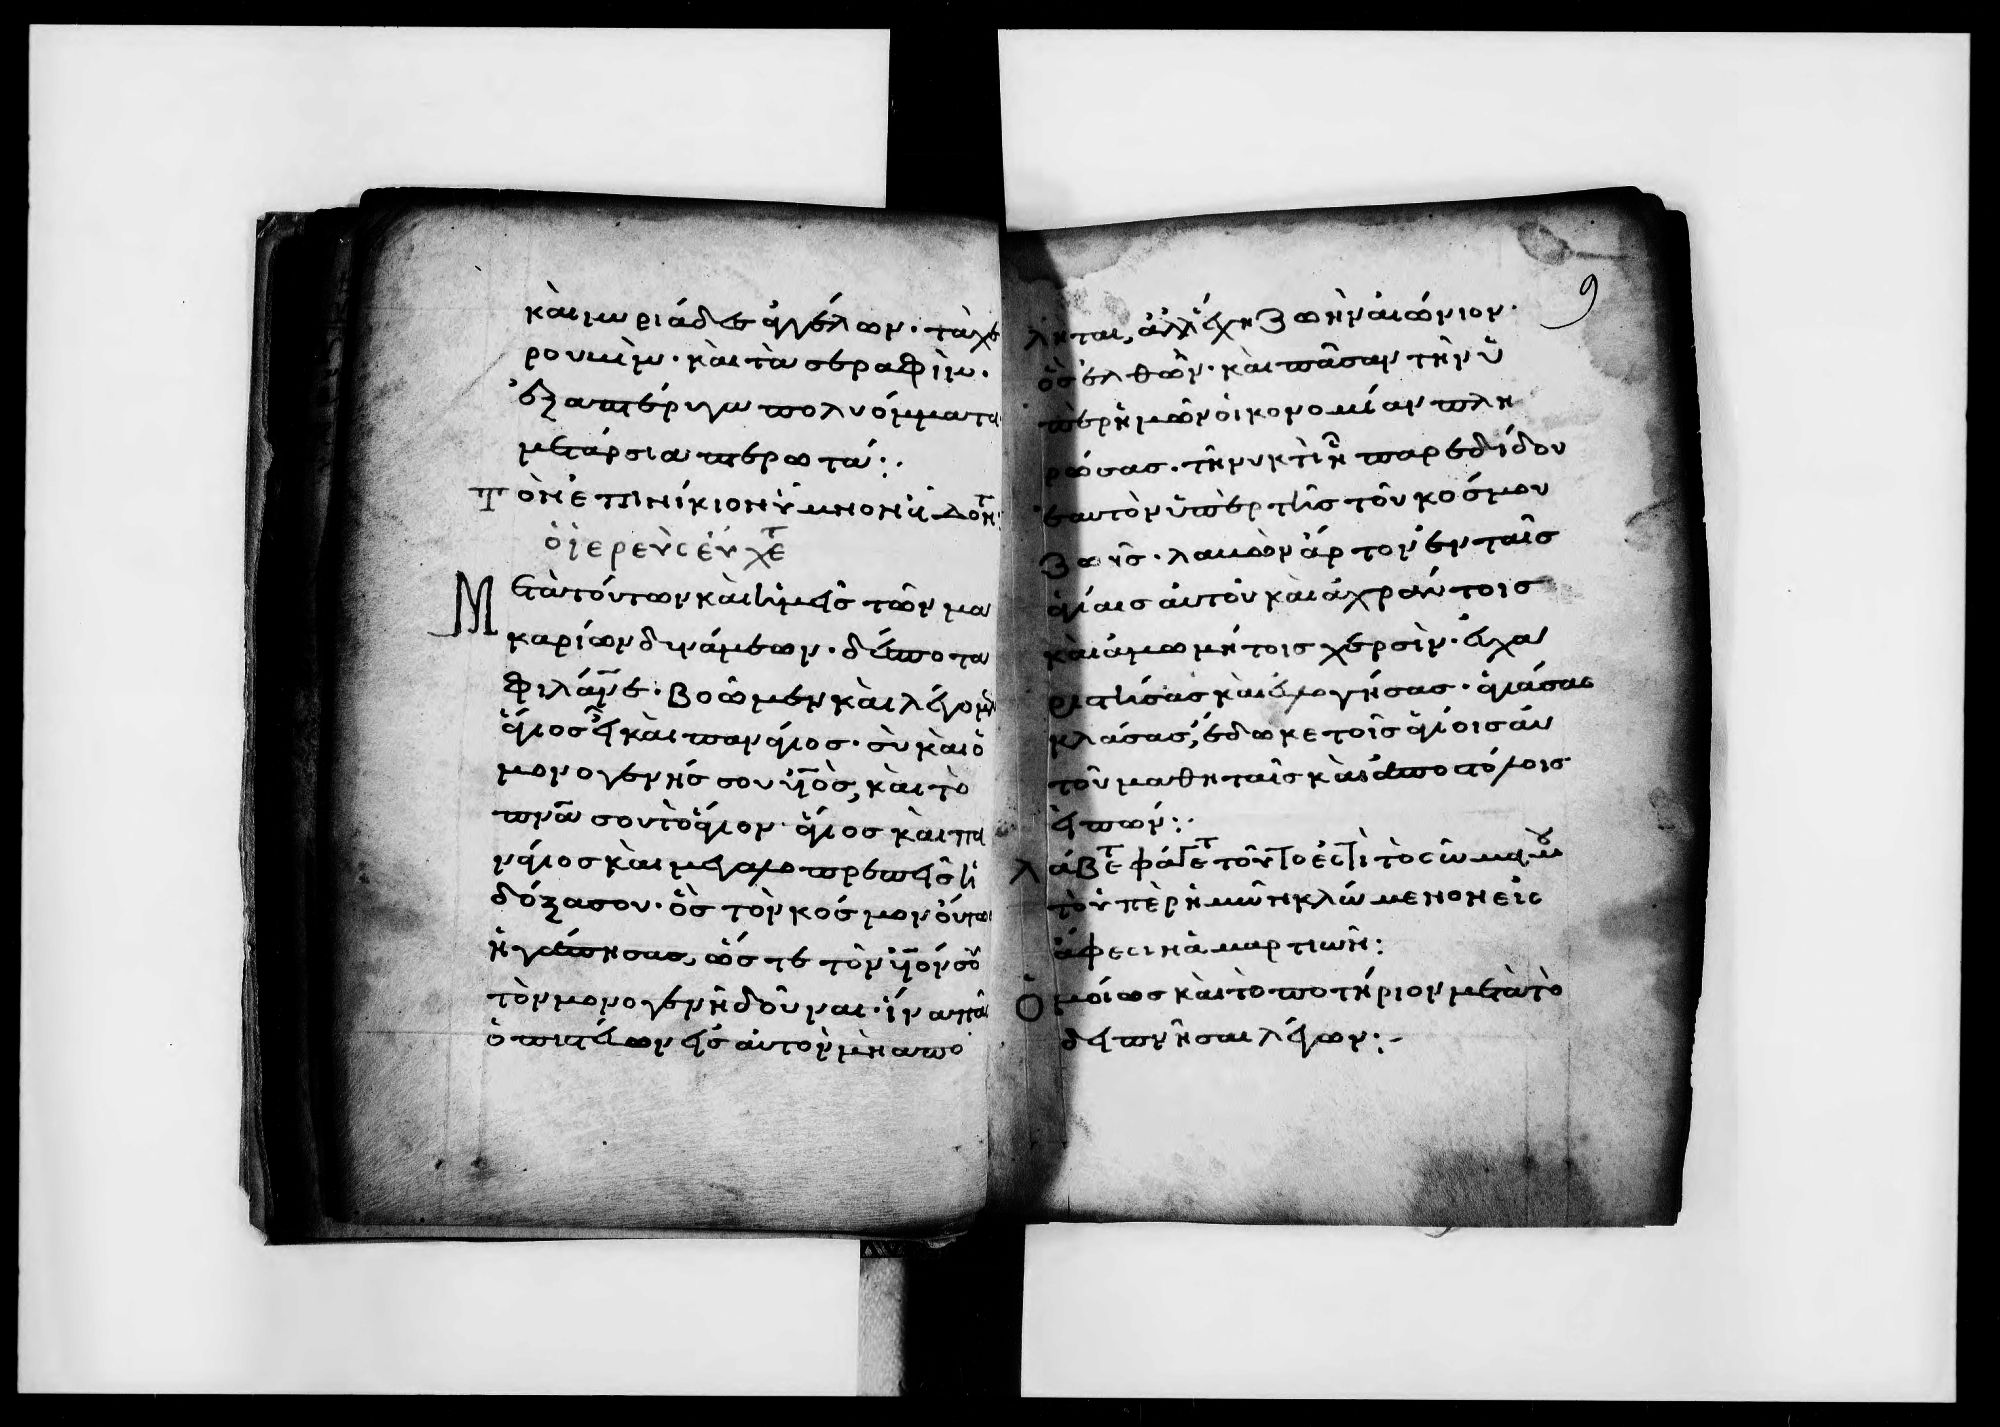 καὶ μυριάδες ἀγγέλων· τὰ χε
ρουβὶμ· καὶ τὰ σεραφὶμ·
ἑξαπτέρυγα πολυόμματα
μετάρσια πτερωτά:·
Τὸν ἐπινίκιον ὕμνον ᾄδοντ
ὁ ἱερεὺς εὔχετ
Μετὰ τούτων καὶ ἡμεῖς τῶν μα
καρίων δυνάμεων· δέσποτα
φιλάνε· βοῶμεν καὶ λέγομεν
ἅγιος εἶ καὶ πανάγιος· σὺ καὶ ὁ
μονογενής σου υἱὸς, καὶ τὸ
πνα σου τὸ ἅγιον· ἅγιος καὶ πα
νάγιος καὶ μεγαλοπρεπεῖς ἡ
δόξα σου· ὃς τὸν κόσμον οὕτως
ἠγάπησας, ὥστε τὸν υἱόν σου
τὸν μονογενῆ δοῦναι· ἵνα πᾶς
ὁ πιστεύων εἰς αὐτὸν μὴ απο
ληται, ἀλλ' ἔχῃ ζωὴν αἰώνιον·
ὃς ἐλθὼν· καὶ πᾶσαν τὴν ὑ
πὲρ ἡμῶν οἰκονομίαν πλη
ρώσας· τῇ νυκτὶ ᾗ παρεδίδου
ἑαυτὸν ὑπὲρ τῆς τοῦ κόσμου
ζωῆς· λαβὼν ἄρτον ἐν ταῖς
ἁγίαις αὐτοῦ καὶ ἀχράντοις
καὶ ἀμωμήτοις χερσὶν· εὐχα
ριστήσας καὶ εὐλογήσας· ἁγιάσας
κλάσας, ἔδωκε τοῖς ἁγίοις αὐ
τοῦ μαθηταῖς καὶ ἀποστόλοις
εἰπών:·
Λάβετ φάγετ τοῦτο ἐστὶ τὸ σῶμα μου
τὸ ὑπὲρ ἡμῶν κλώμενον εἰς
ἄφεσιν ἁμαρτιῶν:
Ὁμοίως καὶ τὸ ποτήριον μετὰ τὸ
δειπνῆσαι λέγων:·
9